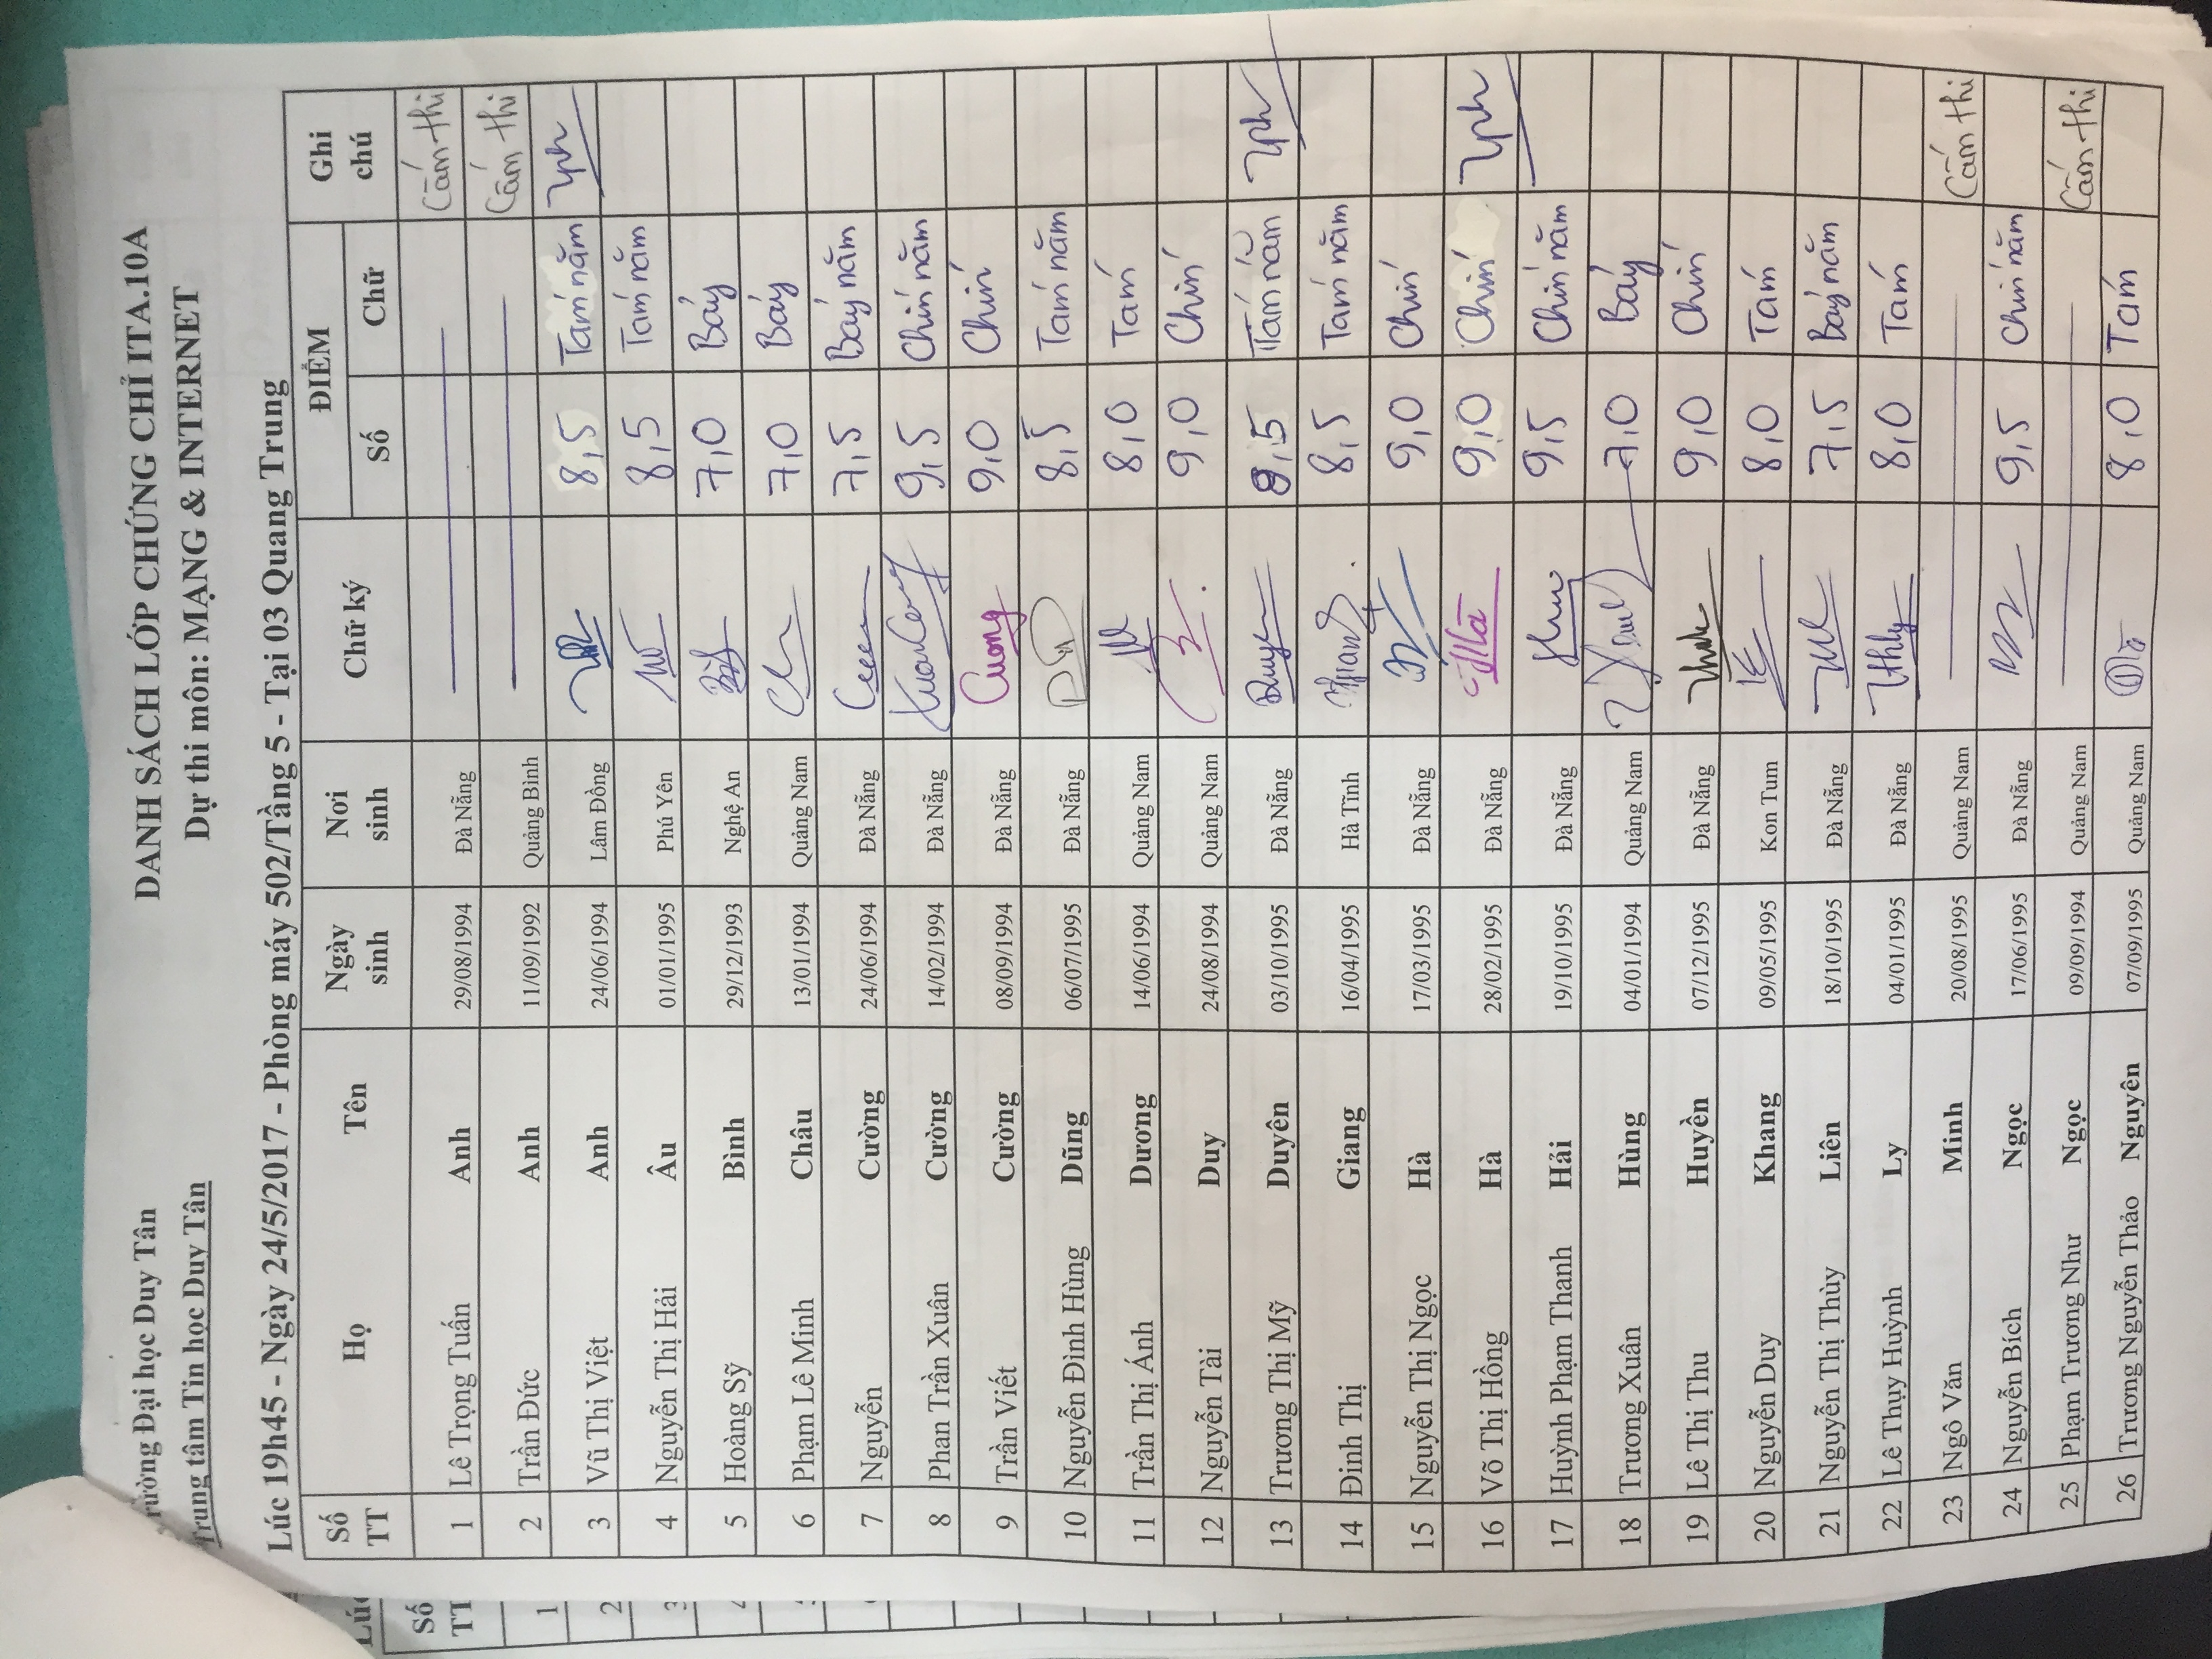 Trường Đại học Duy Tân
Trung tâm Tin học Duy Tân
DANH SÁCH LỚP CHỨNG CHỈ ITA.10A
Dự thi môn: MẠNG & INTERNET
Lúc 19h45 - Ngày 24/5/2017 - Phòng máy 502/Tầng 5 - Tại 03 Quang Trung
Số TT Họ Tên Ngày sinh Nơi sinh Chữ ký ĐIỂM Ghi chú
Số Chữ
1 Lê Trọng Tuấn Anh 29/08/1994 Đà Nẵng Cấm thi
2 Trần Đức Anh 11/09/1992 Quảng Bình Cấm thi
3 Vũ Thị Việt Anh 24/06/1994 Lâm Đồng 8,5 Tám năm
4 Nguyễn Thị Hải Âu 01/01/1995 Phú Yên 8,5 Tám năm
5 Hoàng Sỹ Bình 29/12/1993 Nghệ An 7,0 Bảy
6 Phạm Lê Minh Châu 13/01/1994 Quảng Nam 7,0 Bảy
7 Nguyễn Cường 24/06/1994 Đà Nẵng 7,5 Bảy năm
8 Phan Trần Xuân Cường 14/02/1994 Đà Nẵng 9,5 Chín năm
9 Trần Viết Cường 08/09/1994 Đà Nẵng Cuong 9,0 Chín
10 Nguyễn Đình Hùng Dũng 06/07/1995 Đà Nẵng 8,5 Tám năm
11 Trần Thị Ánh Dương 14/06/1994 Quảng Nam 8,0 Tám
12 Nguyễn Tài Duy 24/08/1994 Quảng Nam 9,0 Chín
13 Trương Thị Mỹ Duyên 03/10/1995 Đà Nẵng 8,5 Tám năm
14 Đinh Thị Giang 16/04/1995 Hà Tĩnh 8,5 Tám năm
15 Nguyễn Thị Ngọc Hà 17/03/1995 Đà Nẵng 9,0 Chín
16 Võ Thị Hồng Hà 28/02/1995 Đà Nẵng 9,0 Chín
17 Huỳnh Phạm Thanh Hải 19/10/1995 Đà Nẵng 9,5 Chín năm
18 Trương Xuân Hùng 04/01/1994 Quảng Nam 7,0 Bảy
19 Lê Thị Thu Huyền 07/12/1995 Đà Nẵng 9,0 Chín
20 Nguyễn Duy Khang 09/05/1995 Kon Tum 8,0 Tám
21 Nguyễn Thị Thùy Liên 18/10/1995 Đà Nẵng 7,5 Bảy năm
22 Lê Thụy Huỳnh Ly 04/01/1995 Đà Nẵng 8,0 Tám
23 Ngô Văn Minh 20/08/1995 Quảng Nam Cấm thi
24 Nguyễn Bích Ngọc 17/06/1995 Đà Nẵng 9,5 Chín năm
25 Phạm Trương Như Ngọc 09/09/1994 Quảng Nam Cấm thi
26 Trương Nguyễn Thảo Nguyên 07/09/1995 Quảng Nam 8,0 Tám
Số
TT
1
2